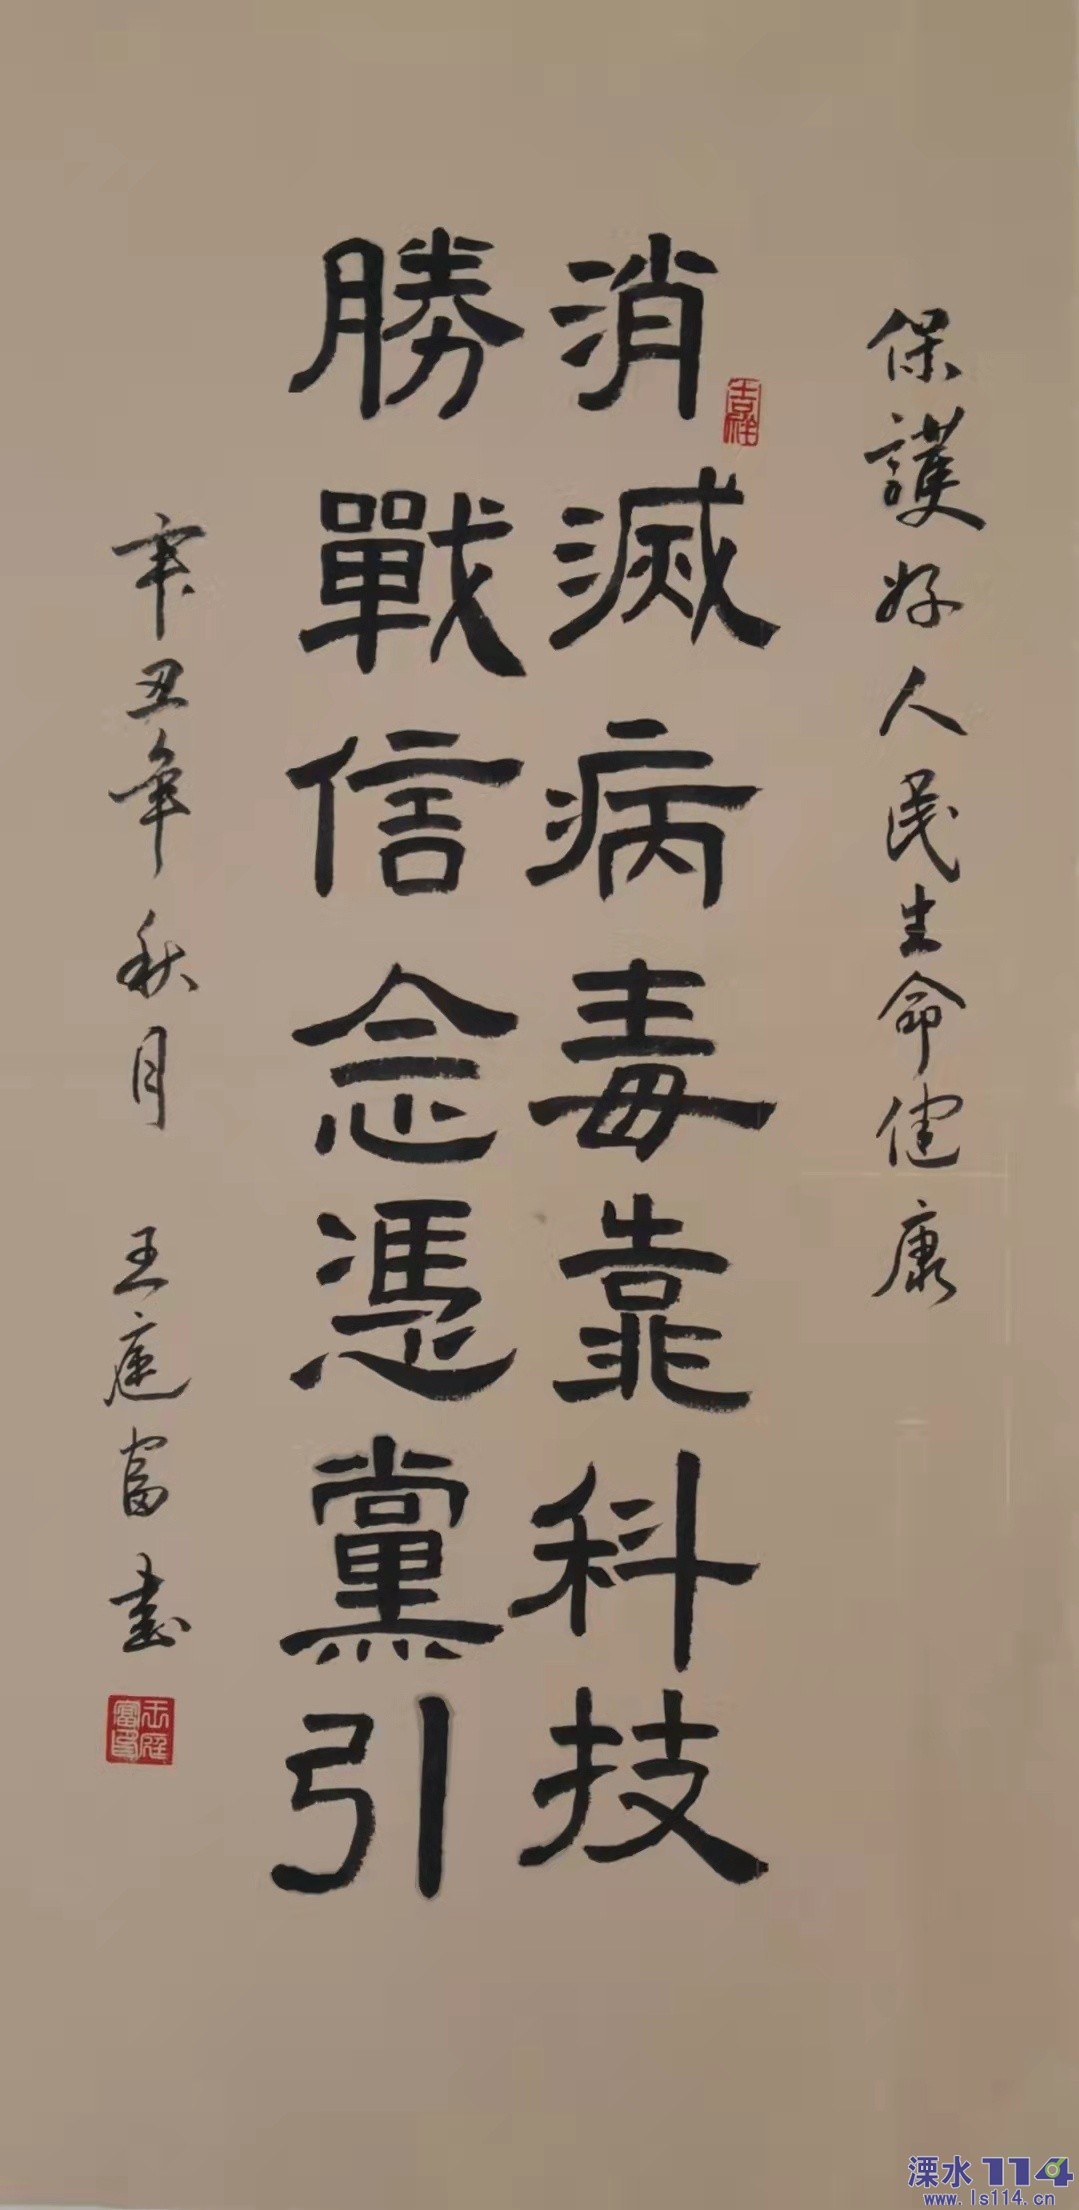 保護好人民生命健康
消滅病毒靠科技
勝戰信念憑黨引
辛丑年秋月 王庭富書
吉祥
王庭富印
溧水114
www.ls114.cn